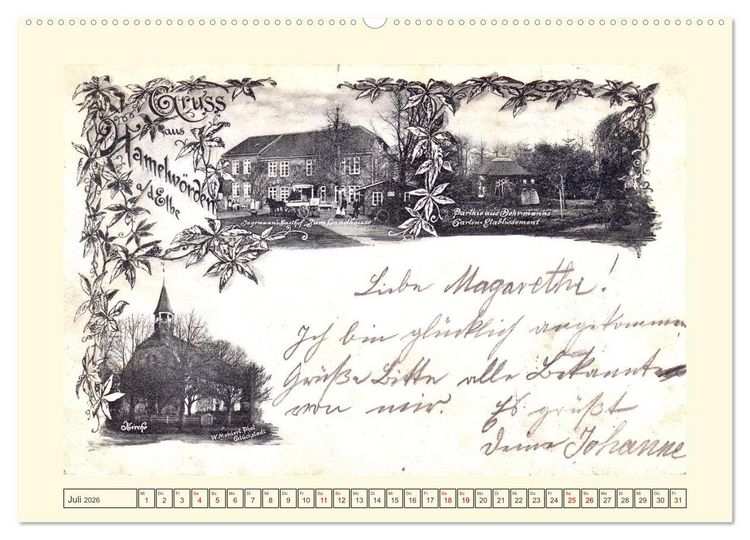 Gruss
aus
Hamelwörden
a/d Elbe
Zum Landhause
Parthie aus Dohrmanns
Garten-Etablissement
Liebe Magarethe!
Ich bin glücklich angekommen
Grüße Bitte alle Bekannte
von mir. Es grüßt
Deine Johanne
Kirche
W. Mehlert, Phot
Glückstadt
Juli 2026
Mi Do Fr Sa So Mo Di Mi Do Fr Sa So Mo Di Mi Do Fr Sa So Mo Di Mi Do Fr Sa So Mo Di Mi Do Fr
1 2 3 4 5 6 7 8 9 10 11 12 13 14 15 16 17 18 19 20 21 22 23 24 25 26 27 28 29 30 31